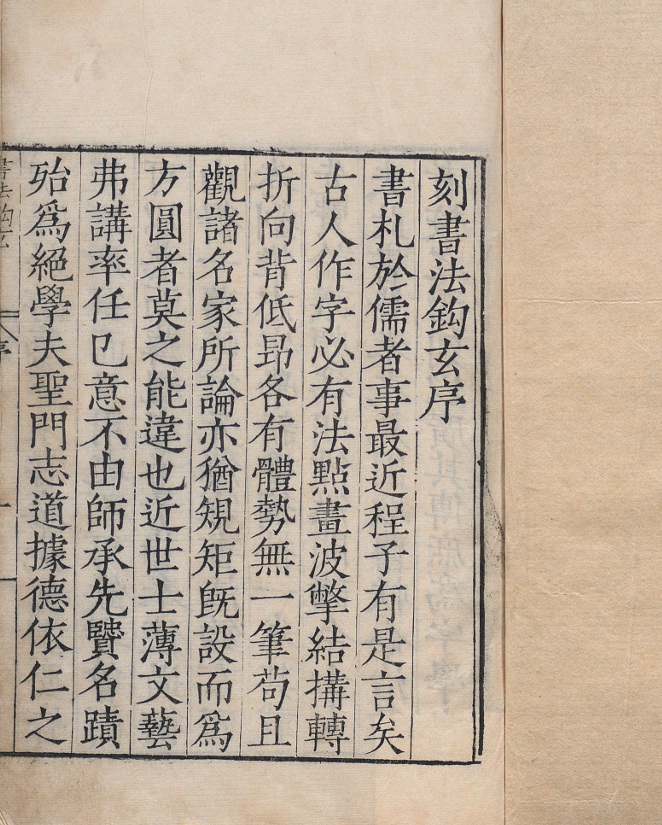 刻書法鈎玄序
書札於儒者事最近程子有是言矣
古人作字必有法點畫波撆結搆轉
折向背低昂各有體勢無一筆茍且
觀諸名家所論亦猶規矩旣設而爲
方圓者莫之能違也近世士薄文藝
弗講率任已意不由師承先賢名蹟
殆爲絕學夫聖門志道據德依仁之
書法鈎玄
序
一